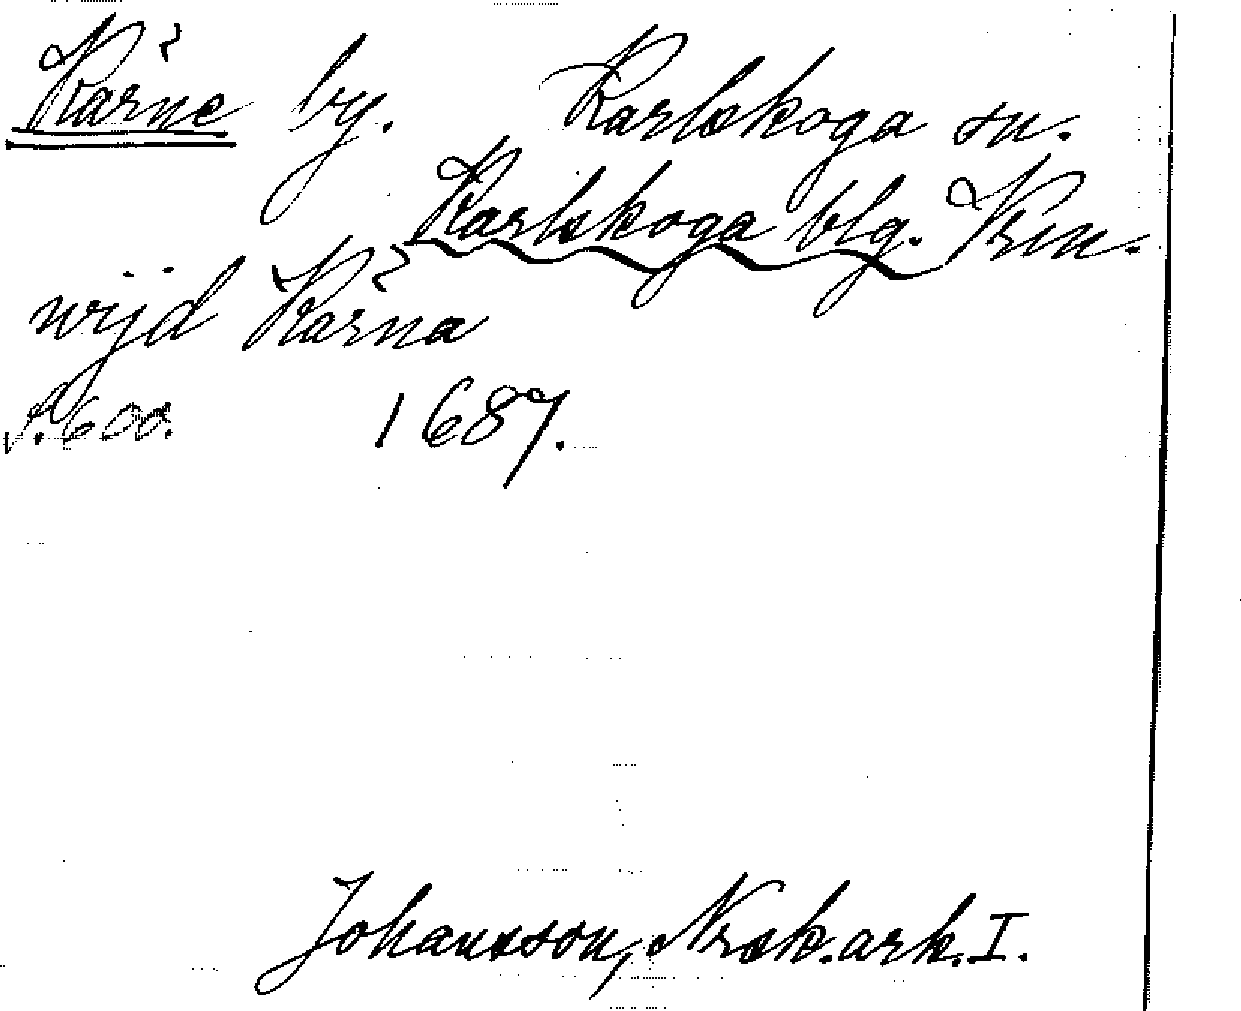 Kärne by. Karlskoga sn.
Karlskoga blg.
wijd Kärna
s. 600. 1687.
Johansson, Nrsk.ark. I.